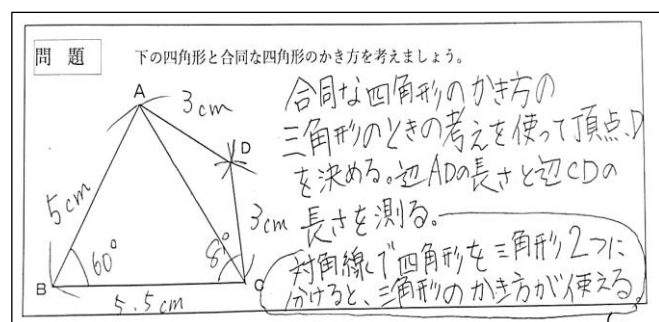 問 題
下の四角形と合同な四角形のかき方を考えましょう。
A
3cm
D
5cm
3cm
60°
B
C
5.5cm
合同な四角形のかき方の
三角形のときの考えを使って頂点、D
を決める。辺ADの長さと辺CDの
長さを測る。
対角線で四角形を三角形2つに
分けると、三角形のかき方が使える。